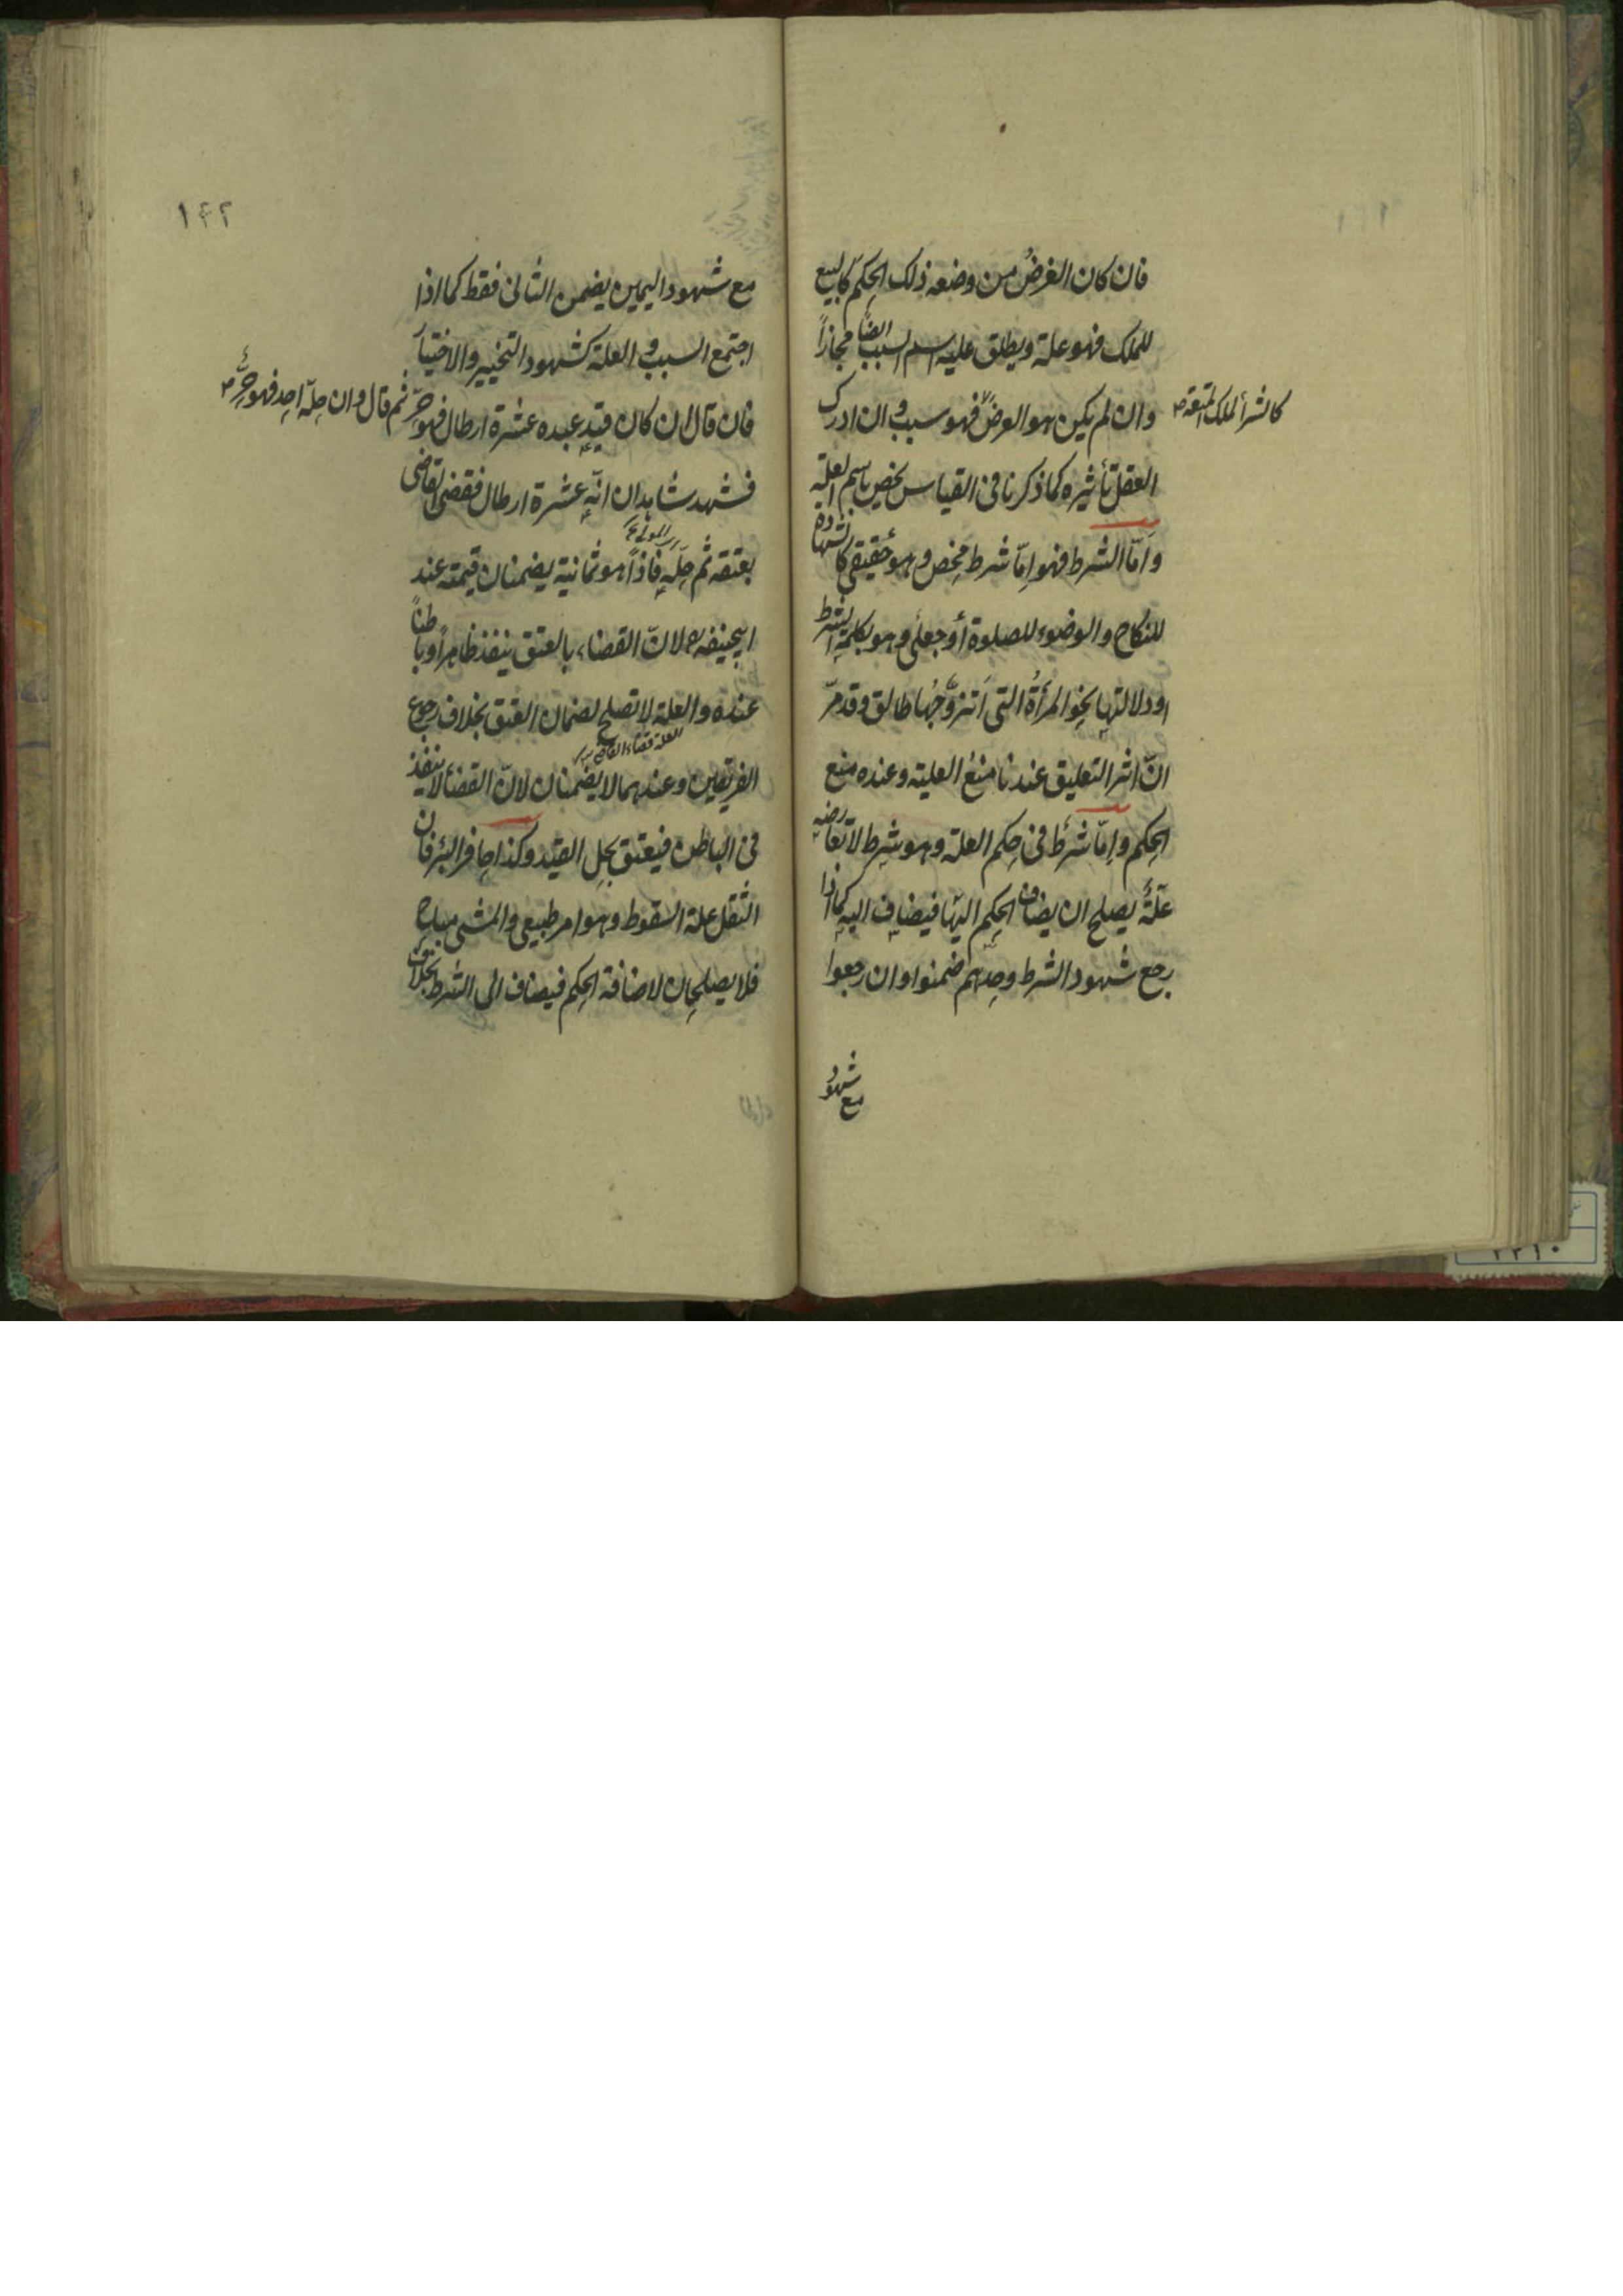 فان كان الغرضُ من وضعه ذلك الحكم كالبيع
للملك فهو علة ويطلق عليه اسم السبب ايضًا مجازاً
وان لم يكن هو الغرض فهو سبب وان ادرك
كالشرأ لملك المتعة صح
العقل تأثيره كما ذكرنا فى القياس يخص باسم العلة
وامّا الشرط فهو امّا شرط محض وهو حقيقي كالشهادة
للنكاح والوضوء للصلوة أو جعلى وهو بكلمة الشرط
او دلالتها نحو المرأةُ التى اَتزوَّجُها طالق وقد مرّ
انّ اثر التعليق عندنا منعُ العلية وعنده منع
الحكم وامّا شرطٌ فى حكم العلة وهو شرط لا تعارضه
علّةٌ يصلح ان يضاف الحكم اليها فيضاف اليه كما اذا
رجع شهود الشرط وحدهم ضمنوا وان رجعوا
مع شهود
١٤٢
مع شهود اليمين يضمن الثانى فقط كما اذا
اجتمع السبب و العلة كشهود التخيير والاختيار
فان قال ان كان قيد عبده عشرة ارطال فهو حرّ
ثم قال وان حلّه احد فهو حرّ صح
فشهد شاهدان انّه عشرة ارطال فقضى القاضى
بعتقه ثم حلّه فاذاً هو ثمانية يضمنان قيمته عند
اى المولى
ابيحنيفه ره لانّ القضاء بالعتق ينفذ ظاهراً وباطناً
عنده والعلة لا تصلح لضمان العتق بخلاف رجوع
العلة قضاء القاضى
الفريقين وعندهما لا يضمنان لانّ القضأ لا ينفذ
فى الباطن فيعتق بحل القيد وكذا حافر البئر فان
الثقل علة السقوط وهو امر طبيعى والمشى مباح
فلا يصلحان لاضافة الحكم فيضاف الى الشرط بخلاف